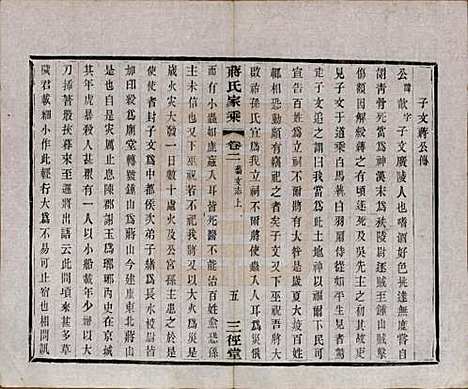 子文蔣公傳
公諱歆字子文廣陵人也嗜酒好色挑達無度嘗自
謂青骨死當為神漢末為秣陵尉逐賊至鍾山賊擊
傷額因解綬縛之有頃遂死及吳先主之初其故吏
見子文于道乘白馬執白羽扇侍從如平生見者驚
走子文追謂曰我當為此土地神以福爾下民可
宣告百姓為我立祠不爾將有大咎是歲夏大疫百姓
輒恐動頗有竊祀之者矣子文又下巫祝吾將大
啟祐孫氏宜為我立祠不爾將使蟲入人耳為災俄
蔣氏家乘 卷二 舊文志上 五 三徑堂
而小蟲如鹿蝱入耳皆死醫不能治百姓愈恐孫主
未之信也又下巫祝若不祀我將又以大火為災是
歲火災大發一日數十處火及公宮孫主患之於
使使者封子文為中都侯次弟子緒為長水校尉
加印綬為廟堂轉號鍾山為蔣山今建康東北蔣山
是也自是災厲止息陳郡謝玉為瑯琊內史在京城
其年虎暴殺人甚眾有一人以小船載年少婦以大
刀插著船挾暮來至邏所將出語云此間頃來甚多草
穢君載細小作此輕行大為不易可止宿也相問訊